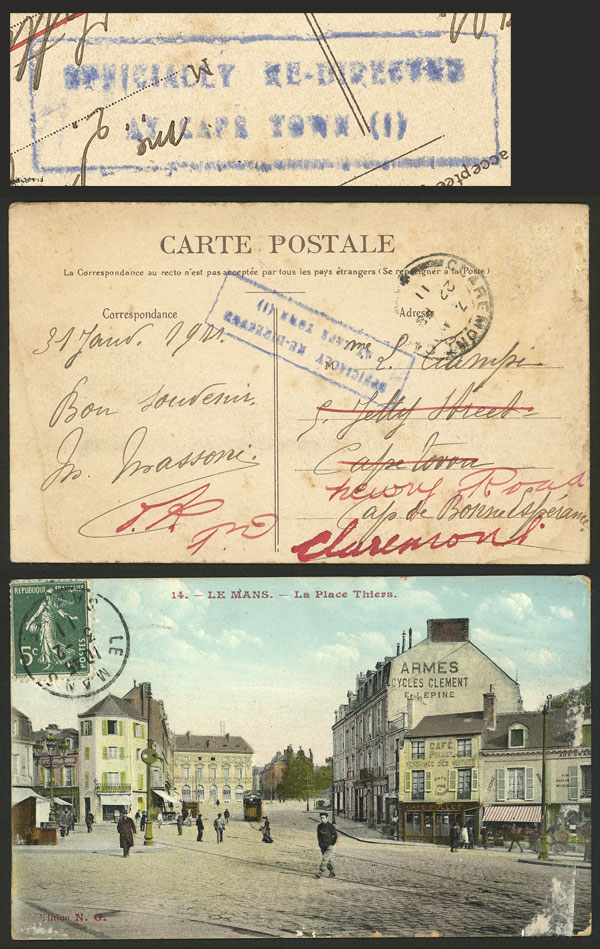 OFFICIALLY RE-DIRECTED
AT CAPE TOWN (1)
M
acceptée
CARTE POSTALE
La Correspondance au recto n'est pas acceptée par tous les pays étrangers (Se renseigner à la Poste)
Correspondance
Adresse
CLAREMONT
OFFICIALLY RE-DIRECTED
AT CAPE TOWN (1)
31 Janv. 1911.
Bon souvenir.
M. Massoni.
M
5. Jetty Street
Cape town
Henry Road
Cap de Bonne Espérance
Claremont
14. - LE MANS. - La Place Thiers.
REPUBLIQUE FRANÇAISE
5c
LE MANS
ARMES
CYCLES CLEMENT
E. LEPINE
CAFÉ
Edition N. G.